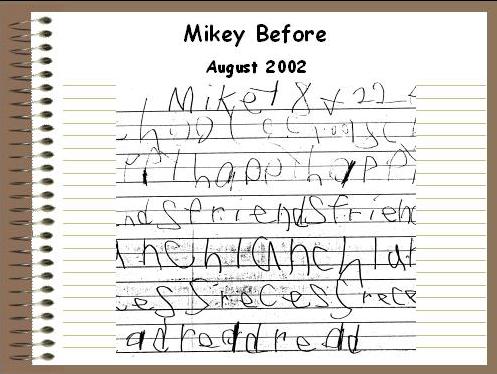 Mikey Before
August 2002
Mikey 8 22
happ happ
nds friends frien
nch lanch la
es Sreces Srece
ad read read